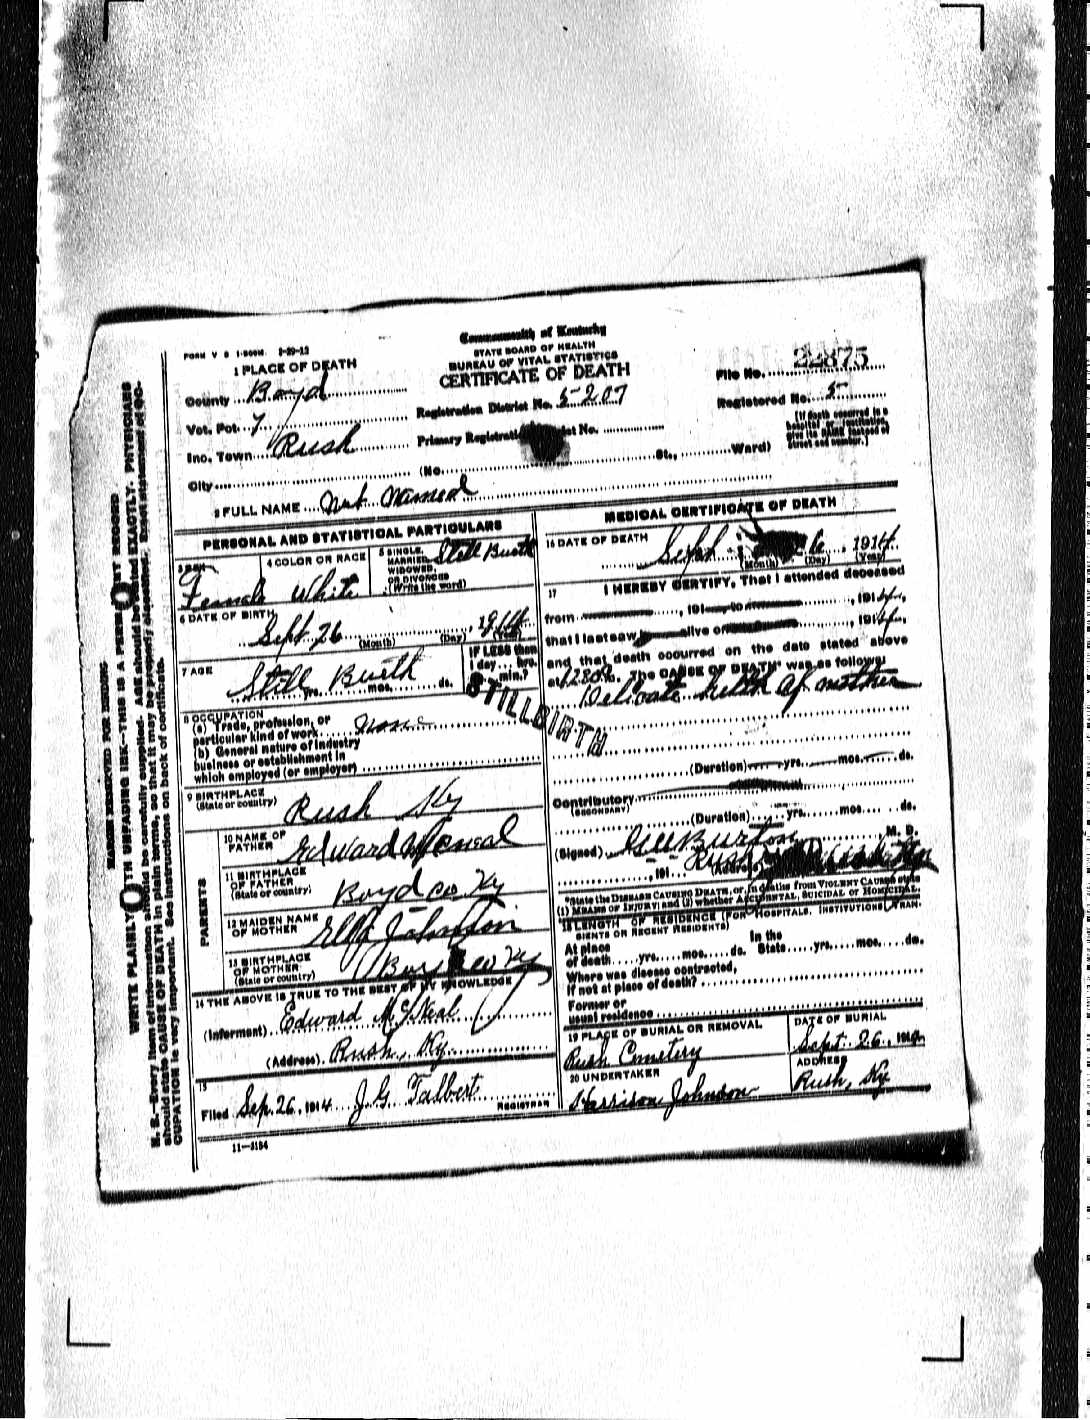 FORM V S 1-500M. 2-29-12
Commonwealth of Kentucky
STATE BOARD OF HEALTH
BUREAU OF VITAL STATISTICS
CERTIFICATE OF DEATH
1 PLACE OF DEATH
County Boyd
Vot. Pct. 7
Inc. Town Rush
City (No. St., Ward)
Registration District No. 5207
Primary Registration District No.
File No. 22875
Registered No. 5
[If death occurred in a
hospital or institution,
give its NAME instead of
street and number.]
2 FULL NAME Not Named
PERSONAL AND STATISTICAL PARTICULARS
3 SEX
Female
4 COLOR OR RACE
White
5 SINGLE,
MARRIED,
WIDOWED,
OR DIVORCED
(Write the word)
Still Bueth
6 DATE OF BIRTH
Sept. 26, 1914
(Month) (Day) (Year)
7 AGE
Still Bueth
yrs. mos. ds.
IF LESS than
1 day hrs.
min.?
STILLBIRTH
8 OCCUPATION
(a) Trade, profession, or
particular kind of work None
(b) General nature of industry
business or establishment in
which employed (or employer)
9 BIRTHPLACE
(State or country)
Rush Ky
PARENTS
10 NAME OF
FATHER
Edward
11 BIRTHPLACE
OF FATHER
(State or country)
Boyd co Ky
12 MAIDEN NAME
OF MOTHER
Johnson
13 BIRTHPLACE
OF MOTHER
(State or country)
Co Ky
14 THE ABOVE IS TRUE TO THE BEST OF MY KNOWLEDGE
(Informant) Edward
(Address) Rush, Ky.
15
Filed Sep. 26, 1914 J. G. Talbert
REGISTRAR
11—3184
MEDICAL CERTIFICATE OF DEATH
16 DATE OF DEATH
Sept 26, 1914
(Month) (Day) (Year)
17 I HEREBY CERTIFY, That I attended deceased
from , 191 to , 1914,
that I last saw h alive on , 1914,
and that death occurred on the date stated above
at m. The CAUSE OF DEATH* was as follows:
Delicate helth of mother
(Duration) yrs. mos. ds.
Contributory
(SECONDARY)
(Duration) yrs. mos. ds.
(Signed) Burton, M. D.
, 191 (Address) Rush
*State the DISEASE CAUSING DEATH, or, in deaths from VIOLENT CAUSES state
(1) MEANS OF INJURY; and (2) whether ACCIDENTAL, SUICIDAL or HOMICIDAL.
18 LENGTH OF RESIDENCE (FOR HOSPITALS, INSTITUTIONS, TRAN-
SIENTS OR RECENT RESIDENTS)
At place In the
of death yrs. mos. ds. State yrs. mos. ds.
Where was disease contracted,
If not at place of death?
Former or
usual residence
19 PLACE OF BURIAL OR REMOVAL
Rush Cemetery
DATE OF BURIAL
Sept. 26, 191
20 UNDERTAKER
Harrison Johnson
ADDRESS
Rush, Ky
MARGIN RESERVED FOR BINDING
WRITE PLAINLY WITH UNFADING INK—THIS IS A PERMANENT RECORD
N. B.—Every item of information should be carefully supplied. AGE should be stated EXACTLY. PHYSICIANS
should state CAUSE OF DEATH in plain terms, so that it may be properly classified. Exact statement of OC-
CUPATION is very important. See instructions on back of certificate.